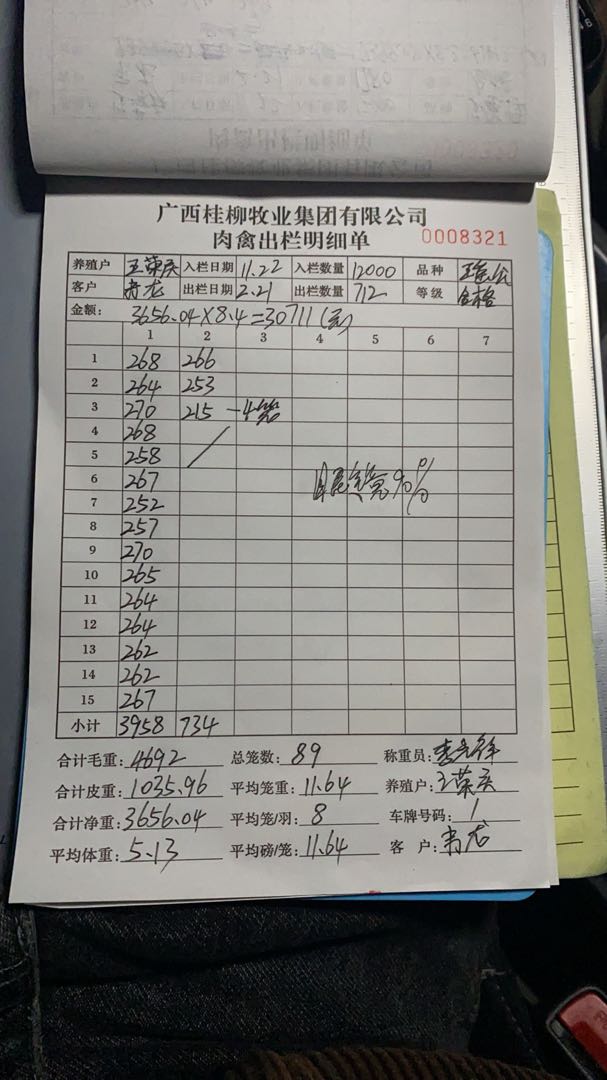 0008320
广西桂柳牧业集团有限公司
肉禽出栏明细单 0008321
养殖户 王荣庆 入栏日期 11.22 入栏数量 12000 品种
客户 韦龙 出栏日期 2.21 出栏数量 712 等级 合格
金额: 3656.04×8.4=30711(元)
1 2 3 4 5 6 7
1 268 266
2 264 253
3 270 215 一4笼
4 268
5 258
6 267 90%
7 252
8 257
9 270
10 265
11 264
12 264
13 262
14 262
15 267
小计 3958 734
合计毛重: 4692 总笼数: 89 称重员:
合计皮重: 1035.96 平均笼重: 11.64 养殖户: 王荣庆
合计净重: 3656.04 平均笼/羽: 8 车牌号码: 1
平均体重: 5.13 平均磅/笼: 11.64 客 户: 韦龙